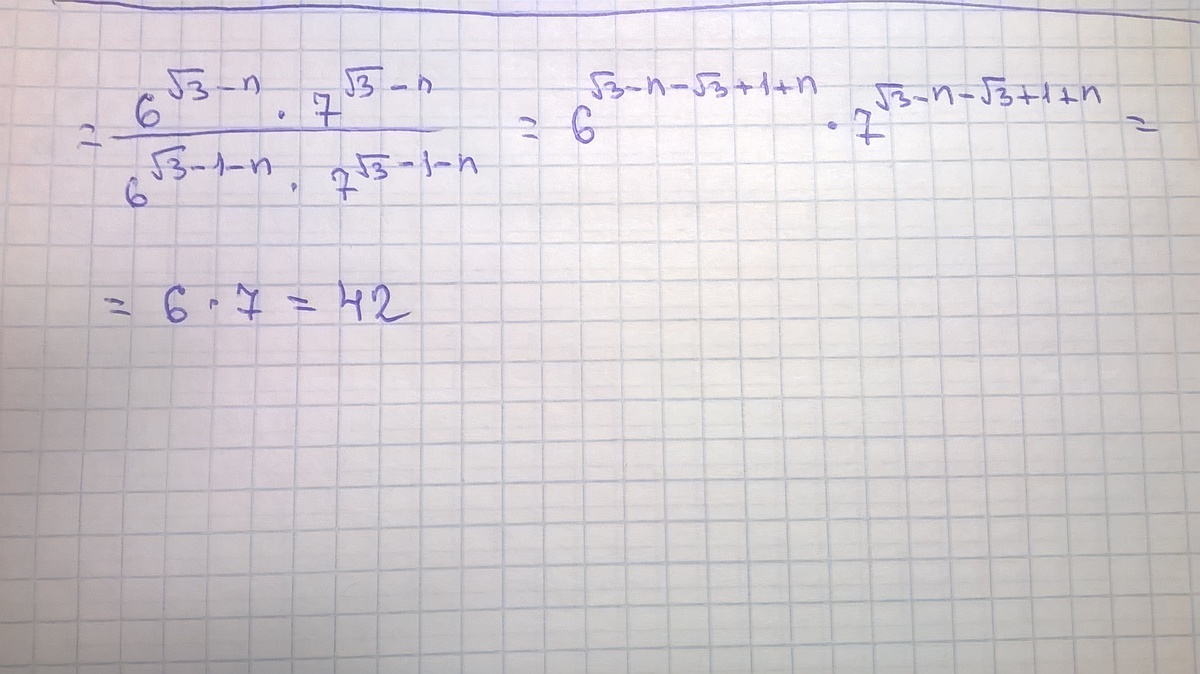 = \frac{6^{√3-n} · 7^{√3-n}}{6^{√3-1-n} · 7^{√3-1-n}} = 6^{√3-n-√3+1+n} · 7^{√3-n-√3+1+n} =
= 6 · 7 = 42